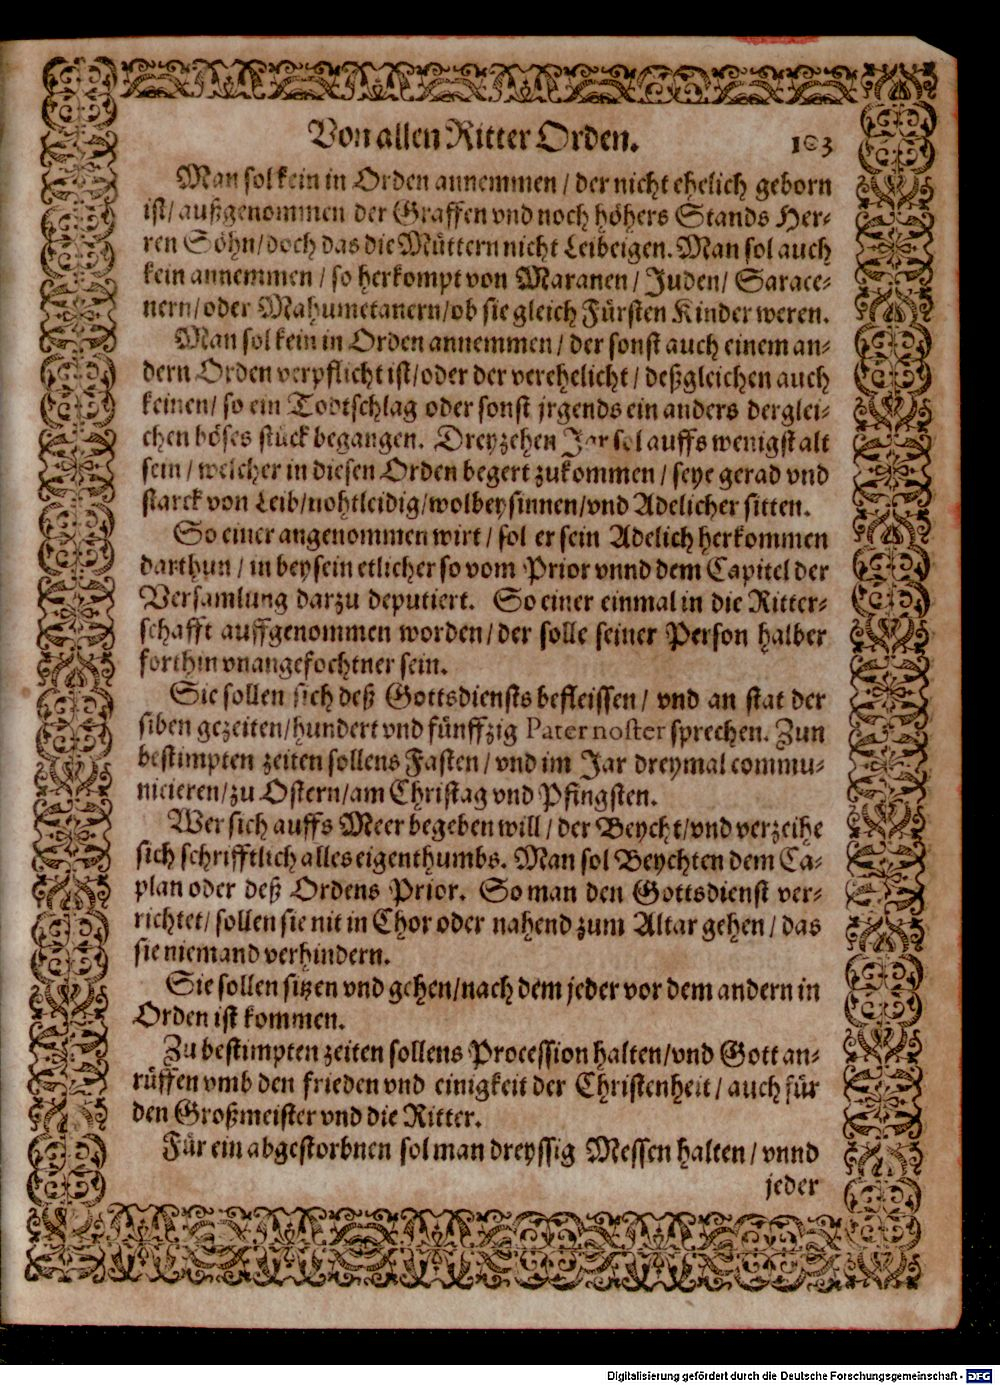 Von allen Ritter Orden. 103
Man sol kein in Orden annemmen / der nicht ehelich geborn
ist / außgenommen der Graffen vnd noch höhers Stands Her-
ren Söhn / doch das die Müttern nicht Leibeigen. Man sol auch
kein annemmen / so herkompt von Maranen / Juden / Sarace-
nern / oder Mahumetanern / ob sie gleich Fürsten Kinder weren.
Man sol kein in Orden annemmen / der sonst auch einem an-
dern Orden verpflicht ist / oder der verehelicht / deßgleichen auch
keinen / so ein Todtschlag oder sonst jrgends ein anders derglei-
chen böses stück begangen. Dreyzehen Jar sol auffs wenigst alt
sein / welcher in diesen Orden begert zukommen / seye gerad vnd
starck von Leib / nohtleidig / wolbey sinnen / vnd Adelicher sitten.
So einer angenommen wirt / sol er sein Adelich herkommen
darthun / in beysein etlicher so vom Prior vnnd dem Capitel der
Versamlung darzu deputiert. So einer einmal in die Ritter-
schafft auffgenommen worden / der solle seiner Person halber
forthin vnangefochtner sein.
Sie sollen sich deß Gottsdiensts befleissen / vnd an stat der
siben gezeiten / hundert vnd fünffzig Pater noster sprechen. Zun
bestimpten zeiten sollens Fasten / vnd im Jar dreymal commu-
nicieren / zu Ostern / am Christag vnd Pfingsten.
Wer sich auffs Meer begeben will / der Beycht / vnd verzeihe
sich schrifftlich alles eigenthumbs. Man sol Beychten dem Ca-
plan oder deß Ordens Prior. So man den Gottsdienst ver-
richtet / sollen sie nit in Chor oder nahend zum Altar gehen / das
sie niemand verhindern.
Sie sollen sitzen vnd gehen / nach dem jeder vor dem andern in
Orden ist kommen.
Zu bestimpten zeiten sollens Procession halten / vnd Gott an-
rüffen vmb den frieden vnd einigkeit der Christenheit / auch für
den Großmeister vnd die Ritter.
Für ein abgestorbnen sol man dreyssig Messen halten / vnnd
jeder
Digitalisierung gefördert durch die Deutsche Forschungsgemeinschaft - DFG